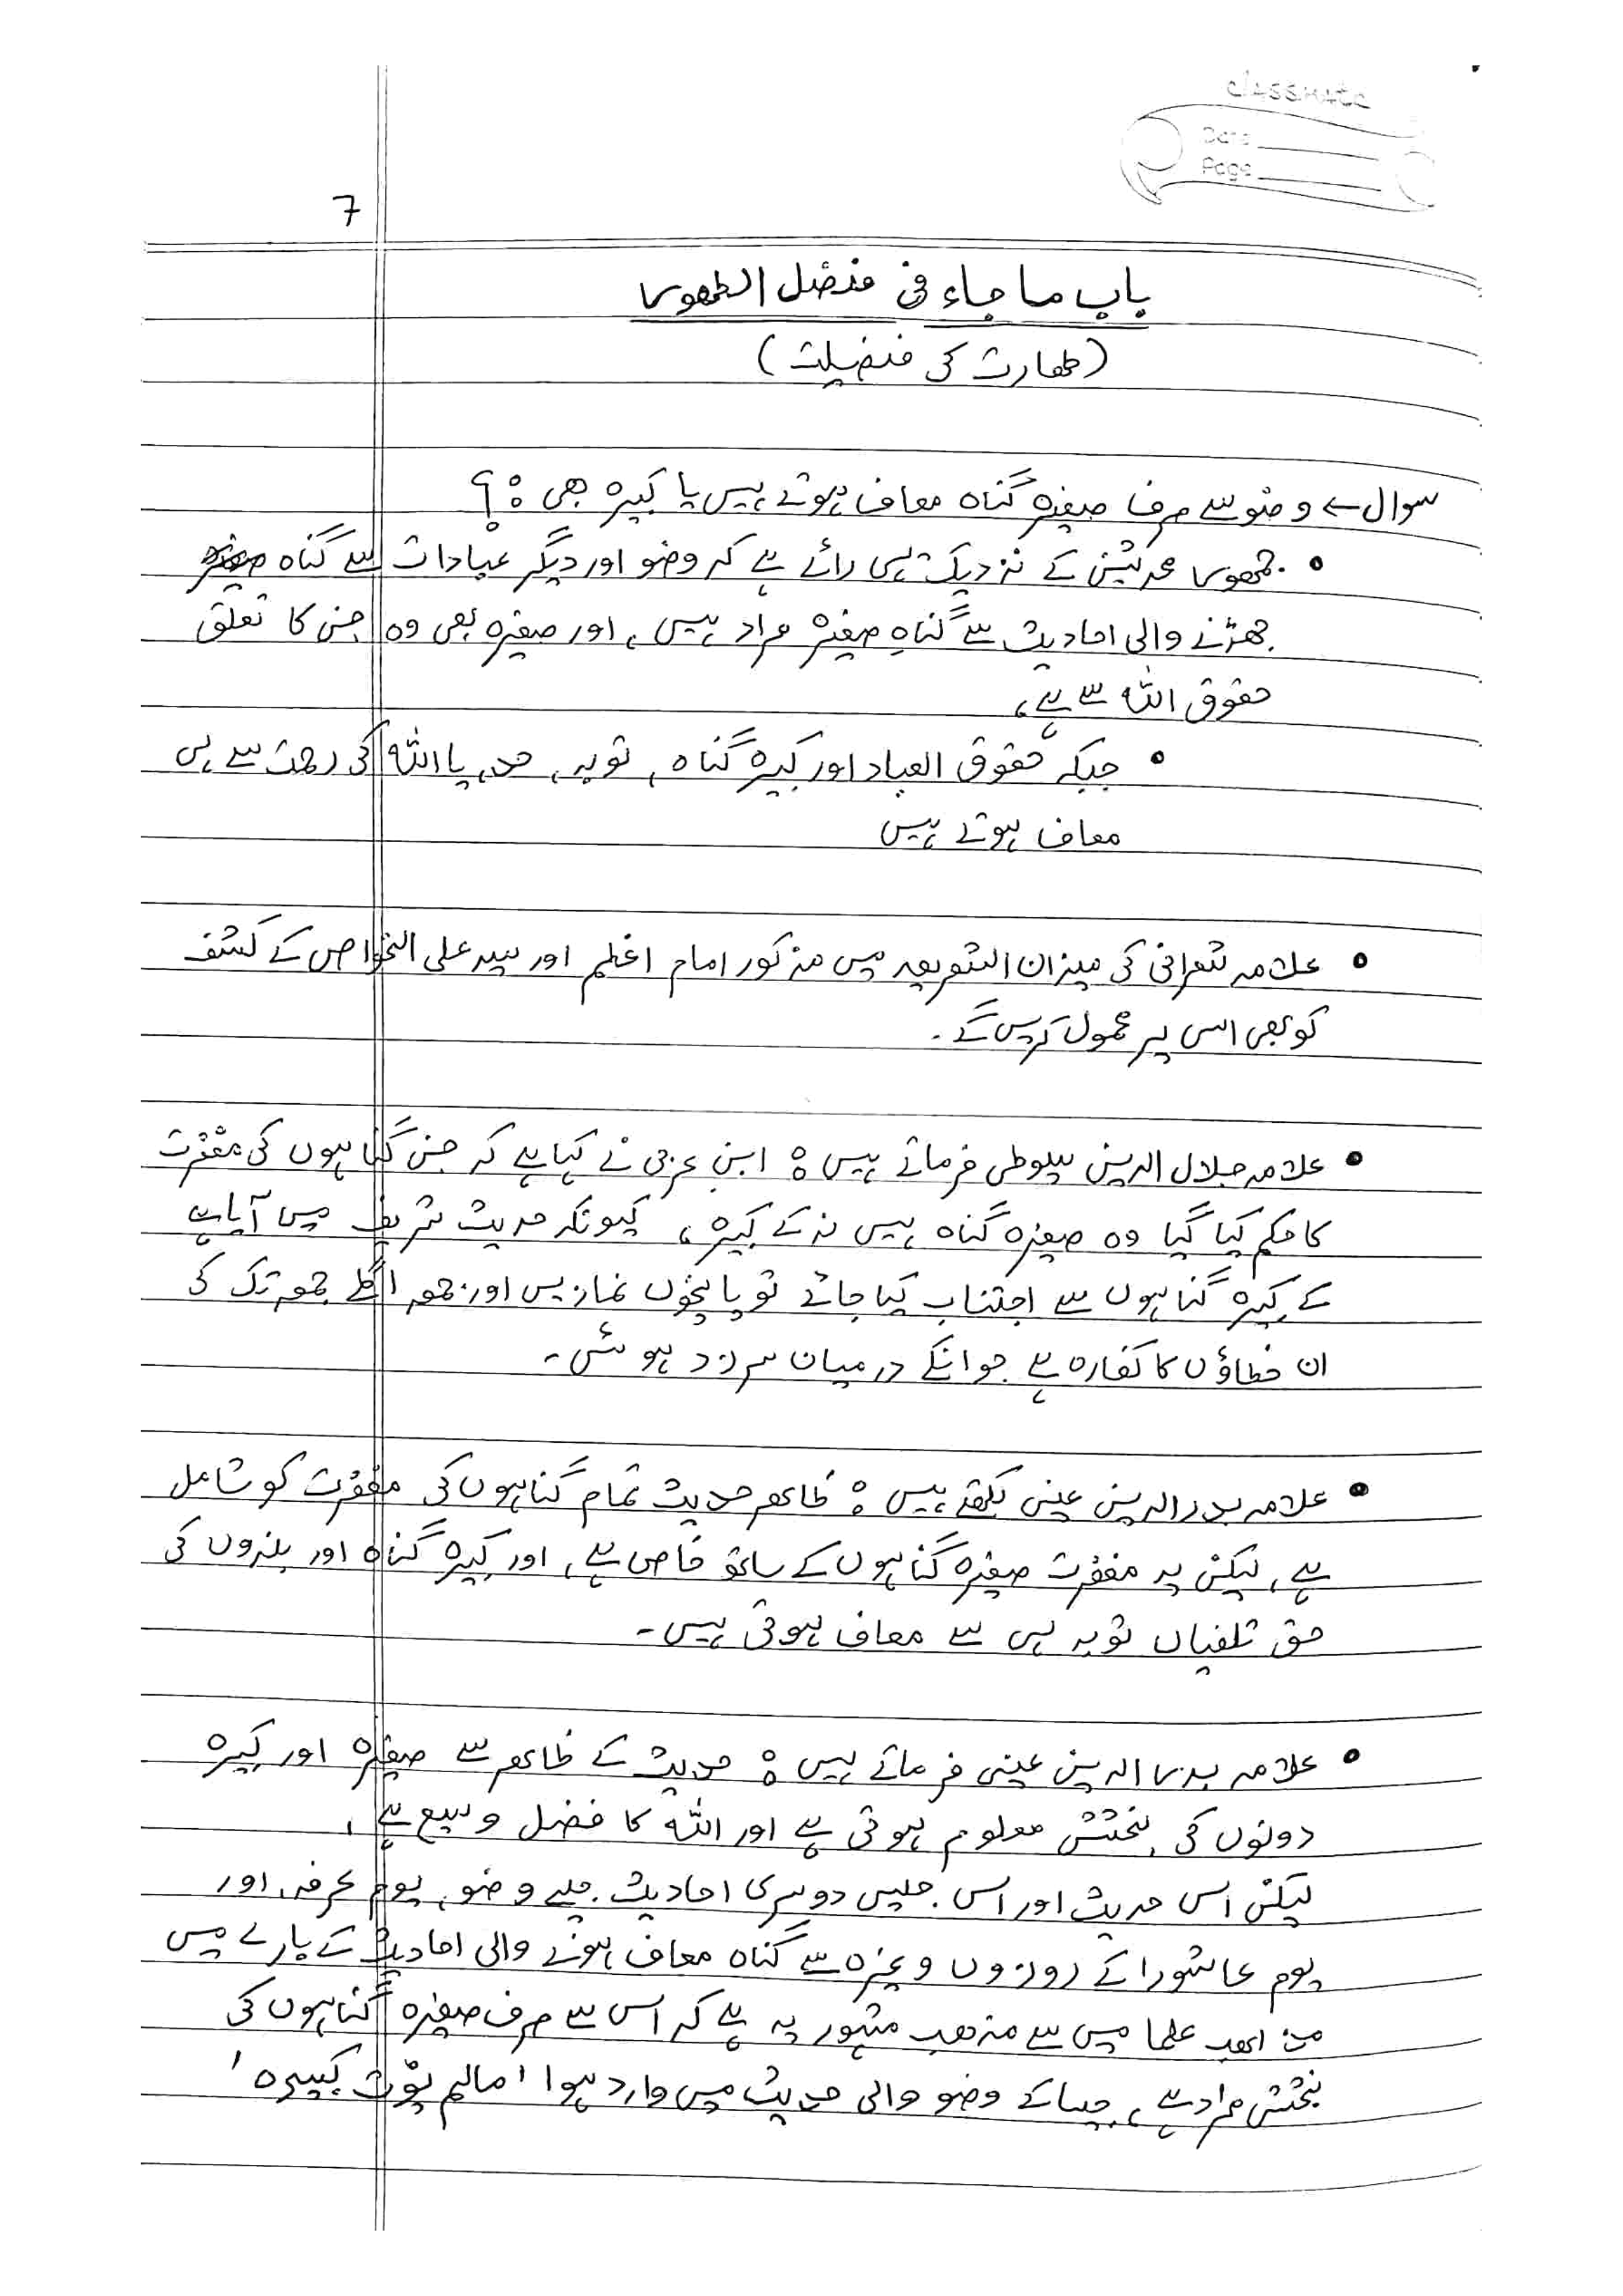 classmate
Date
Page
7
باب ما جاء فی فضل الطھور
(طھارت کی فضیلت)
سوال ← وضو سے صرف صغیرہ گناہ معاف ہوتے ہیں یا کبیرہ بھی :؟
• جمھور محدثین کے نزدیک یہی رائے ہے کہ وضو اور دیگر عبادات سے گناہ صغیرہ
جھڑنے والی احادیث سے گناہِ صغیرہ مراد ہیں، اور صغیرہ بھی وہ جن کا تعلق
حقوق اللہ سے ہے،
• جبکہ حقوق العباد اور کبیرہ گناہ، توبہ، حد، یا اللہ کی رحمت سے ہی
معاف ہوتے ہیں
• علامہ شعرانی کی میزان الشریعہ میں مذکور امام اعظم اور سید علی الخواص کے کشف
کو بھی اسی پر محمول کریں گے۔
• علامہ جلال الدین سیوطی فرماتے ہیں : ابن عربی نے کہا ہے کہ جن گناہوں کی مغفرت
کا حکم کیا گیا وہ صغیرہ گناہ ہیں نہ کے کبیرہ، کیونکہ حدیث شریف میں آیا ہے
کے کبیرہ گناہوں سے اجتناب کیا جائے تو پانچوں نمازیں اور جمعہ اگلے جمعہ تک کی
ان خطاؤں کا کفارہ ہے جو انکے درمیان سرزد ہوئی۔
• علامہ بدر الدین عینی لکھتے ہیں : ظاھر حدیث تمام گناہوں کی مغفرت کو شامل
ہے، لیکن یہ مغفرت صغیرہ گناہوں کے ساتھ خاص ہے، اور کبیرہ گناہ اور بندوں کی
حق تلفیاں توبہ ہی سے معاف ہوتی ہیں۔
• علامہ بدر الدین عینی فرماتے ہیں : حدیث کے ظاھر سے صغیرہ اور کبیرہ
دونوں کی بخشش معلوم ہوتی ہے اور اللہ کا فضل وسیع ہے،
لیکن اس حدیث اور اس جیسی دوسری احادیث جیسے وضو، یوم عرفہ، اور
یوم عاشورا کے روزوں وغیرہ سے گناہ معاف ہونے والی احادیث کے بارے میں
علما میں سے مذھب مشہور یہ ہے کہ اس سے صرف صغیرہ گناہوں کی
بخشش مراد ہے، جیسا کے وضو والی حدیث میں وارد ہوا 'مالم یؤت کبیرہ'